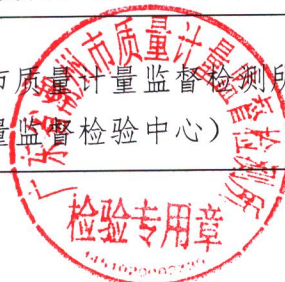 市质量计量监督检测所
量监督检验中心）
广东省潮州市质量计量监督检测所
检验专用章